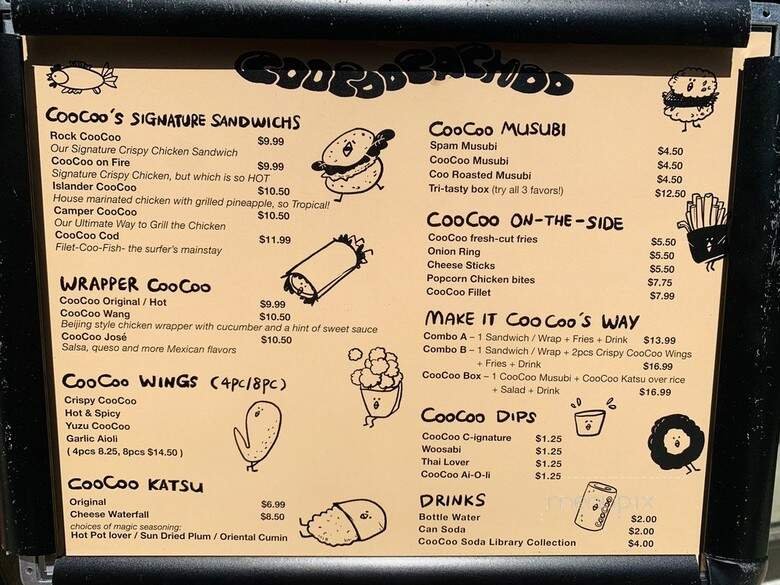 COOCOOCACHOO
COOCOO'S SIGNATURE SANDWICHS
Rock CooCoo $9.99
Our Signature Crispy Chicken Sandwich
CooCoo on Fire $9.99
Signature Crispy Chicken, but which is so HOT
Islander CooCoo $10.50
House marinated chicken with grilled pineapple, so Tropical!
Camper CooCoo $10.50
Our Ultimate Way to Grill the Chicken
CooCoo Cod $11.99
Filet-Coo-Fish- the surfer's mainstay
WRAPPER COOCOO
CooCoo Original / Hot $9.99
CooCoo Wang $10.50
Beijing style chicken wrapper with cucumber and a hint of sweet sauce
CooCoo José $10.50
Salsa, queso and more Mexican flavors
COOCOO WINGS (4PC/8PC)
Crispy CooCoo
Hot & Spicy
Yuzu CooCoo
Garlic Aioli
( 4pcs 8.25, 8pcs $14.50 )
COOCOO KATSU
Original $6.99
Cheese Waterfall $8.50
choices of magic seasoning:
Hot Pot lover / Sun Dried Plum / Oriental Cumin
COOCOO MUSUBI
Spam Musubi $4.50
CooCoo Musubi $4.50
Coo Roasted Musubi $4.50
Tri-tasty box (try all 3 favors!) $12.50
COOCOO ON-THE-SIDE
CooCoo fresh-cut fries $5.50
Onion Ring $5.50
Cheese Sticks $5.50
Popcorn Chicken bites $7.75
CooCoo Fillet $7.99
MAKE IT COOCOO'S WAY
Combo A – 1 Sandwich / Wrap + Fries + Drink $13.99
Combo B – 1 Sandwich / Wrap + 2pcs Crispy CooCoo Wings
+ Fries + Drink $16.99
CooCoo Box – 1 CooCoo Musubi + CooCoo Katsu over rice
+ Salad + Drink $16.99
COOCOO DIPS
CooCoo C-ignature $1.25
Woosabi $1.25
Thai Lover $1.25
CooCoo Ai-O-li $1.25
DRINKS
Bottle Water $2.00
Can Soda $2.00
CooCoo Soda Library Collection $4.00